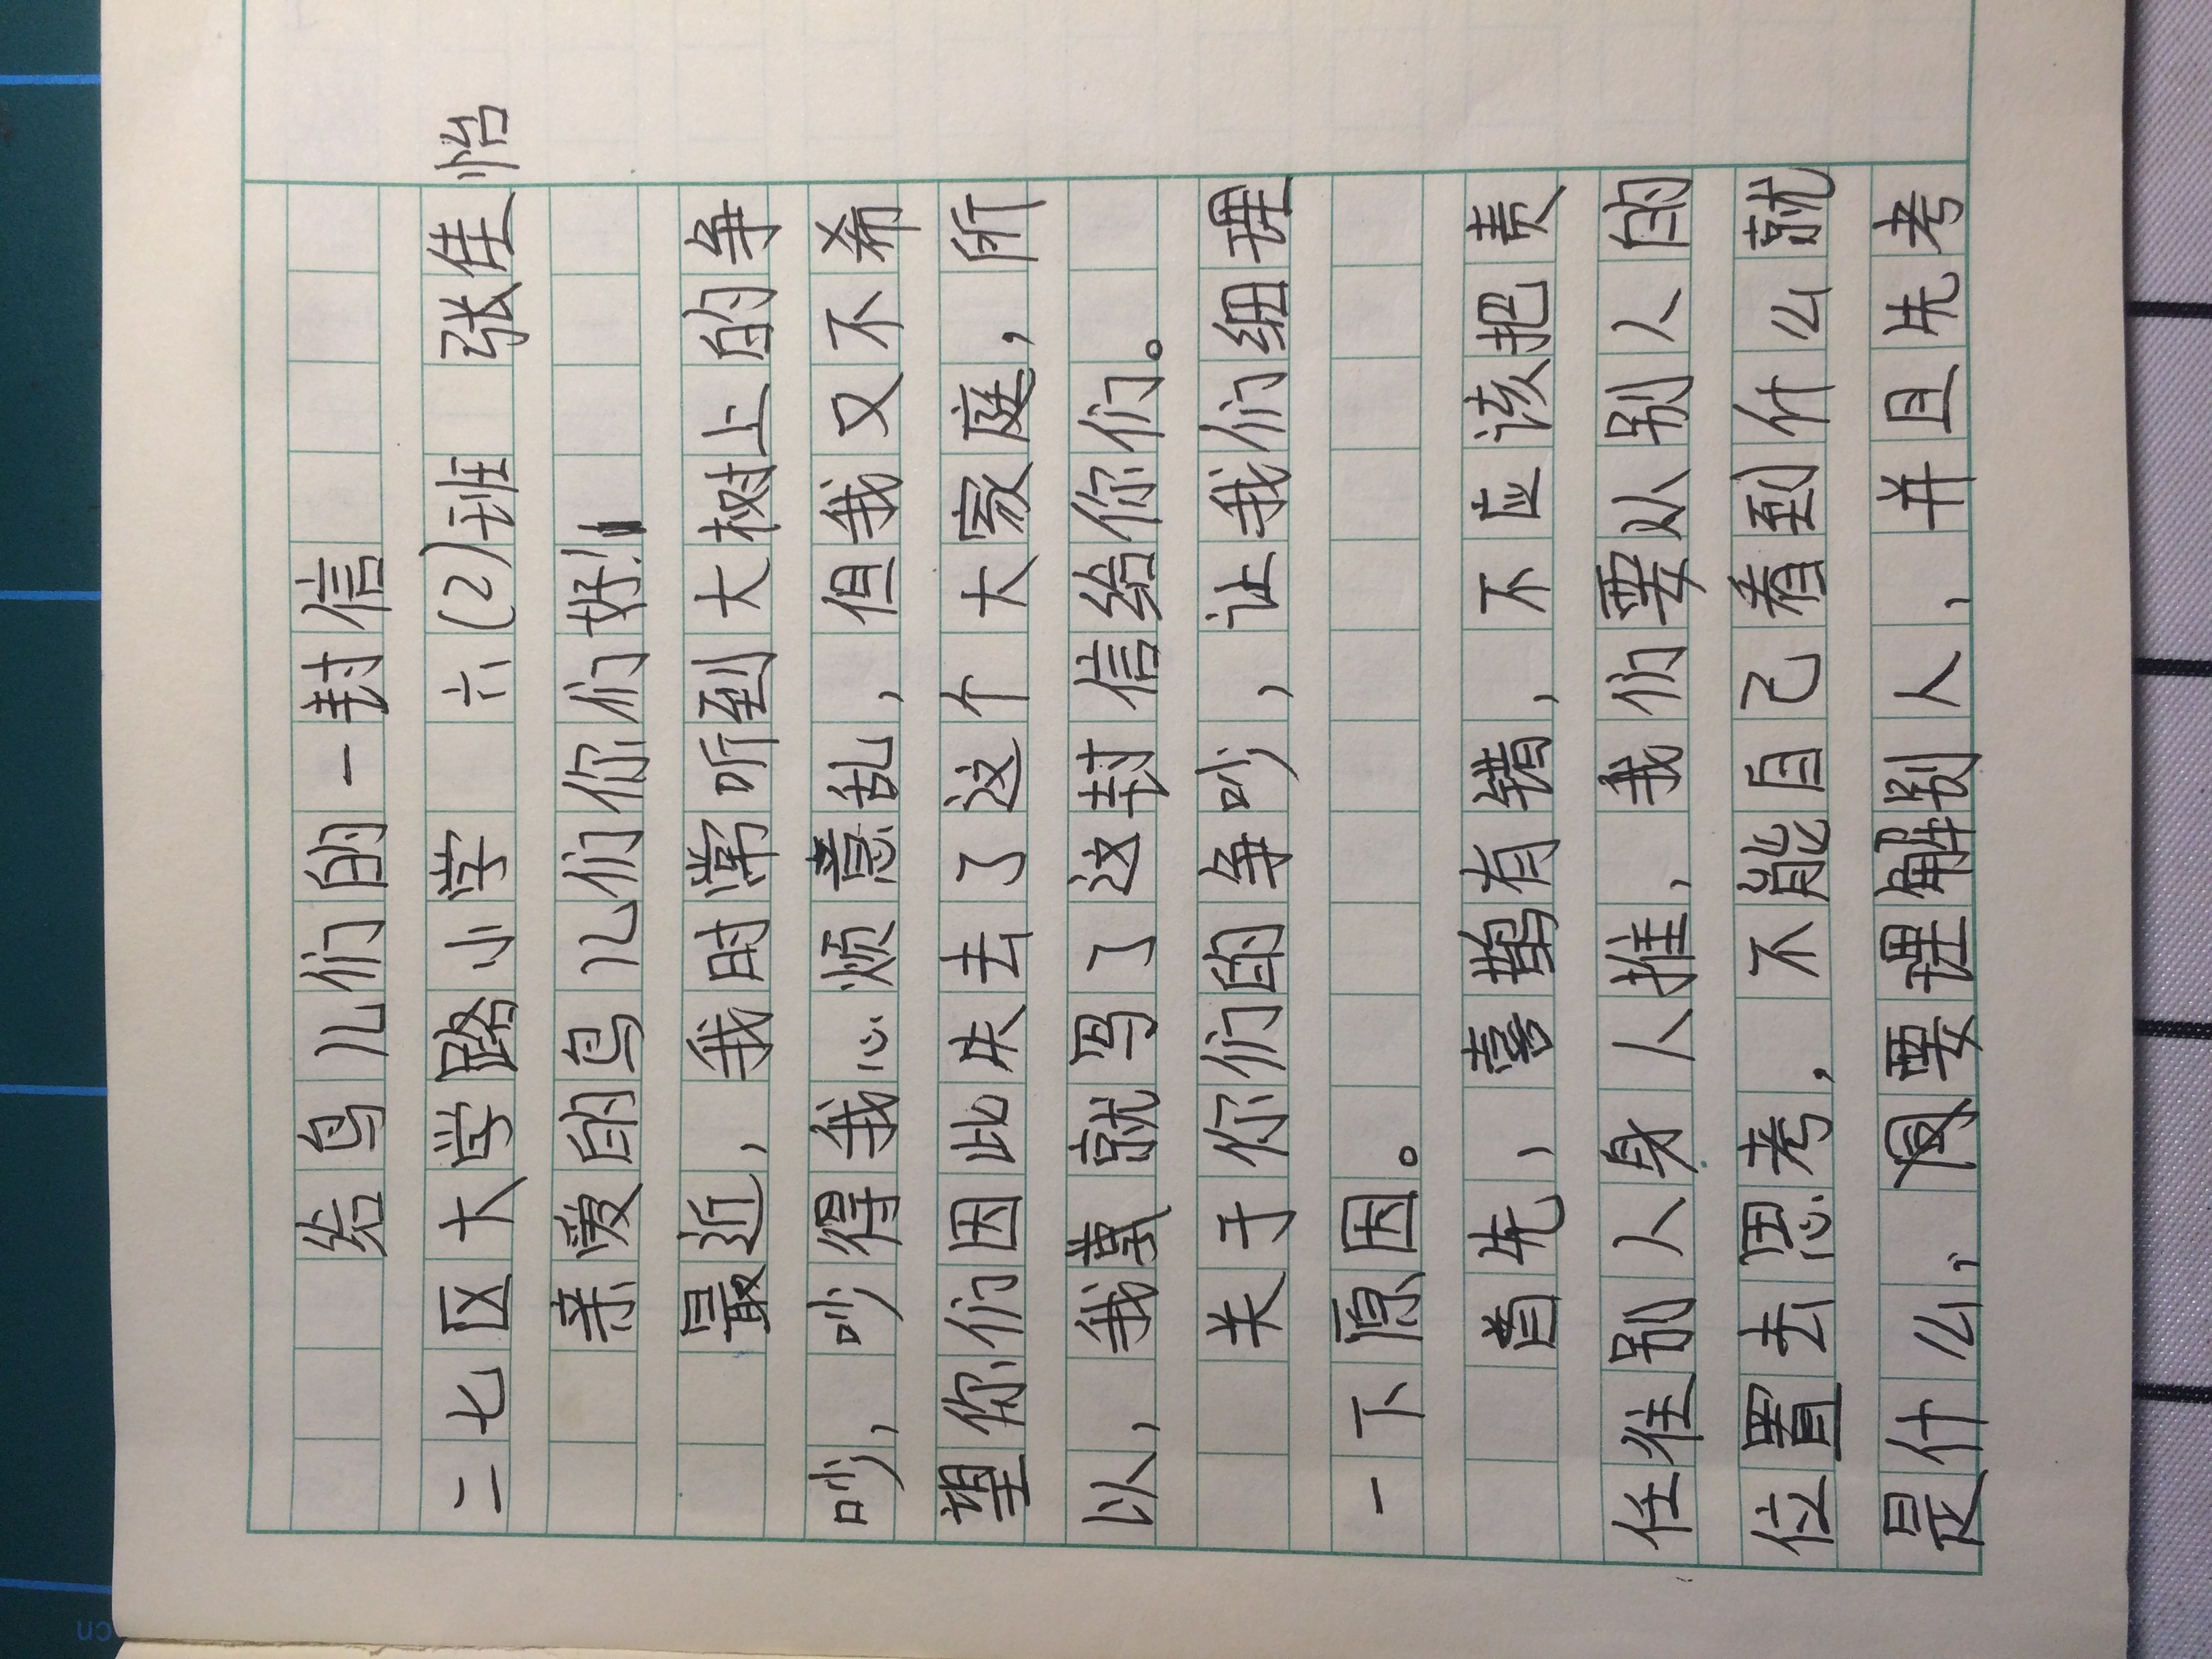 给鸟儿们的一封信
二七区大学路小学 六(2)班 张佳怡
亲爱的鸟儿们你们好!
最近,我时常听到大树上的争
吵,吵得我心烦意乱,但我又不希
望你们因此失去了这个大家庭,所
以,我就写了这封信给你们。
关于你们的争吵,让我们细理
一下原因。
首先,喜鹊有错,不应该把责
任往别人身人推,我们要以别人的
位置去思考,不能自己看到什么就
是什么,要理解别人,并且先考
cn